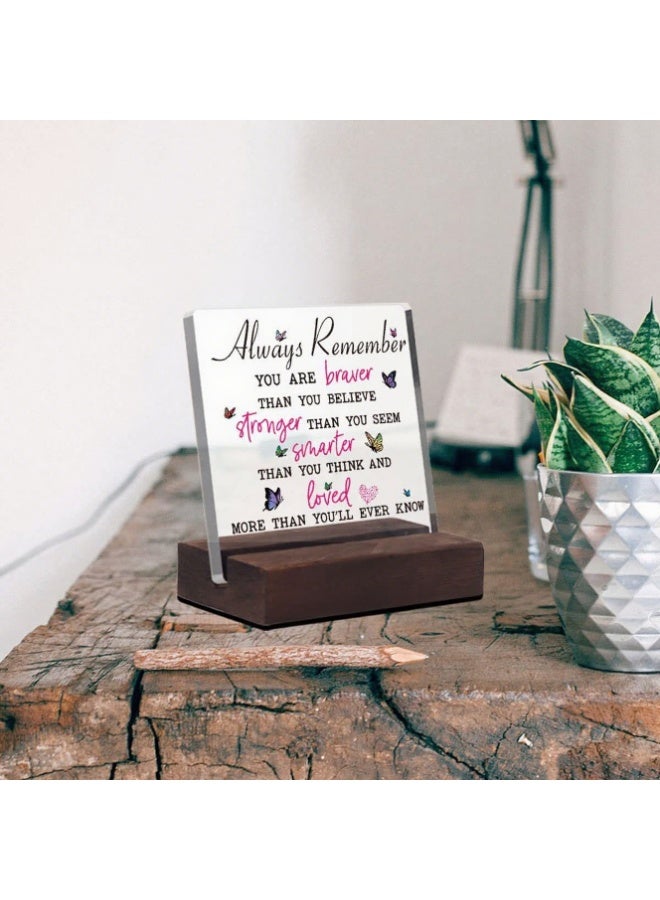 Always Remember
YOU ARE braver
THAN YOU BELIEVE
stronger THAN YOU SEEM
smarter
THAN YOU THINK AND
loved
MORE THAN YOU'LL EVER KNOW